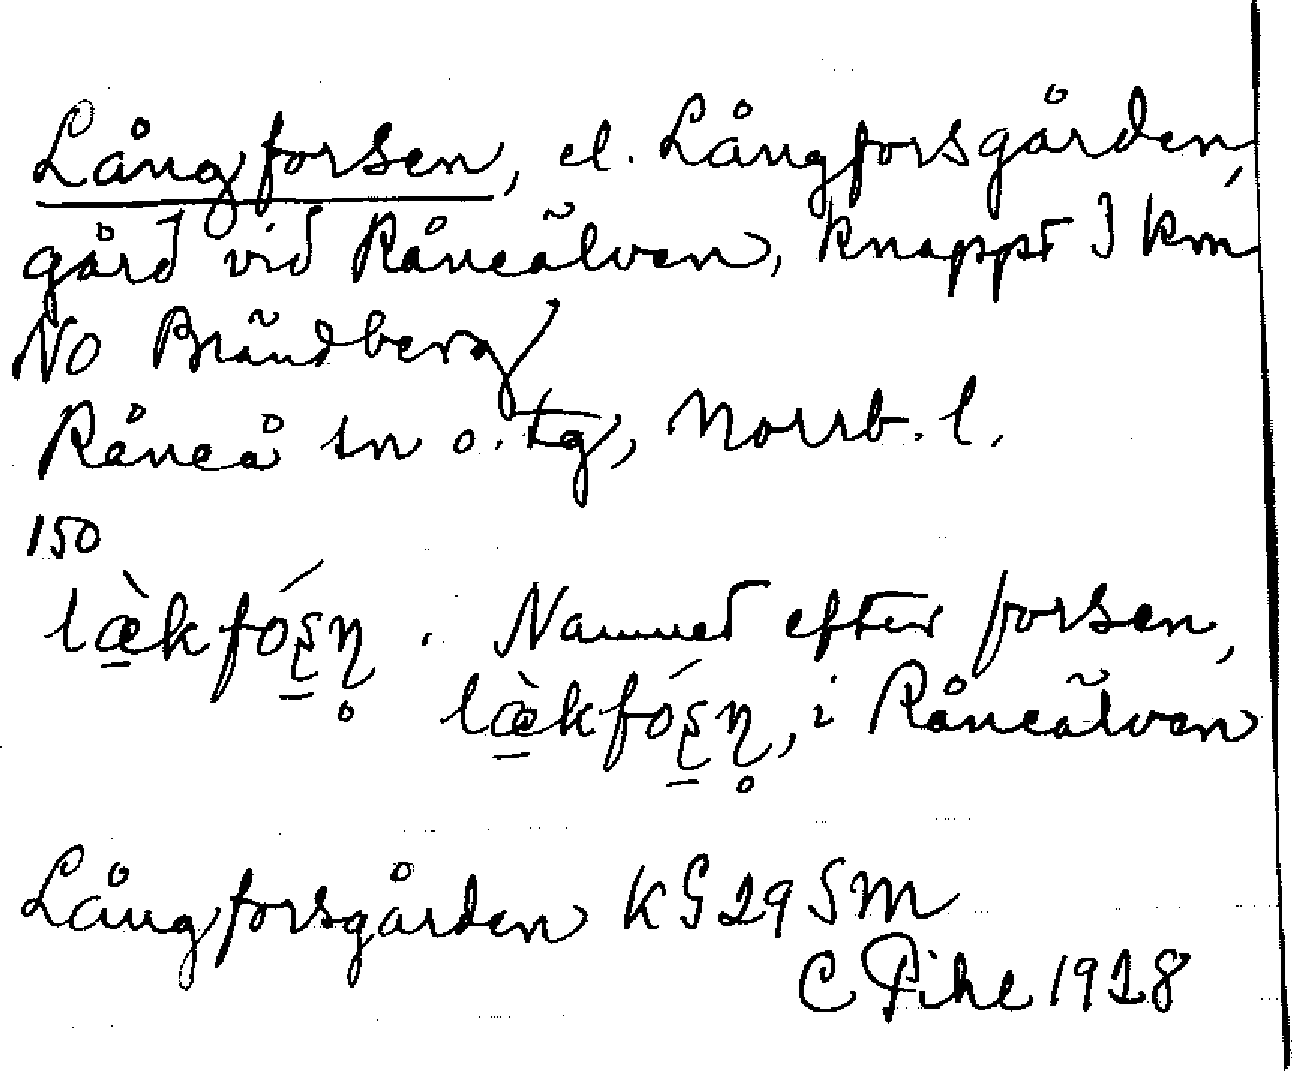 Långforsen, el. Långforsgården,
gård vid Råneälven, knappt 3 km
NO Brändberg
Råneå sn o. tg, Norrb. l.
150
læ̀kfóʂn̥. Namnet efter forsen,
læ̀kfóʂn̥, i Råneälven
Långforsgården KG 29 SM
C Pihl 1928